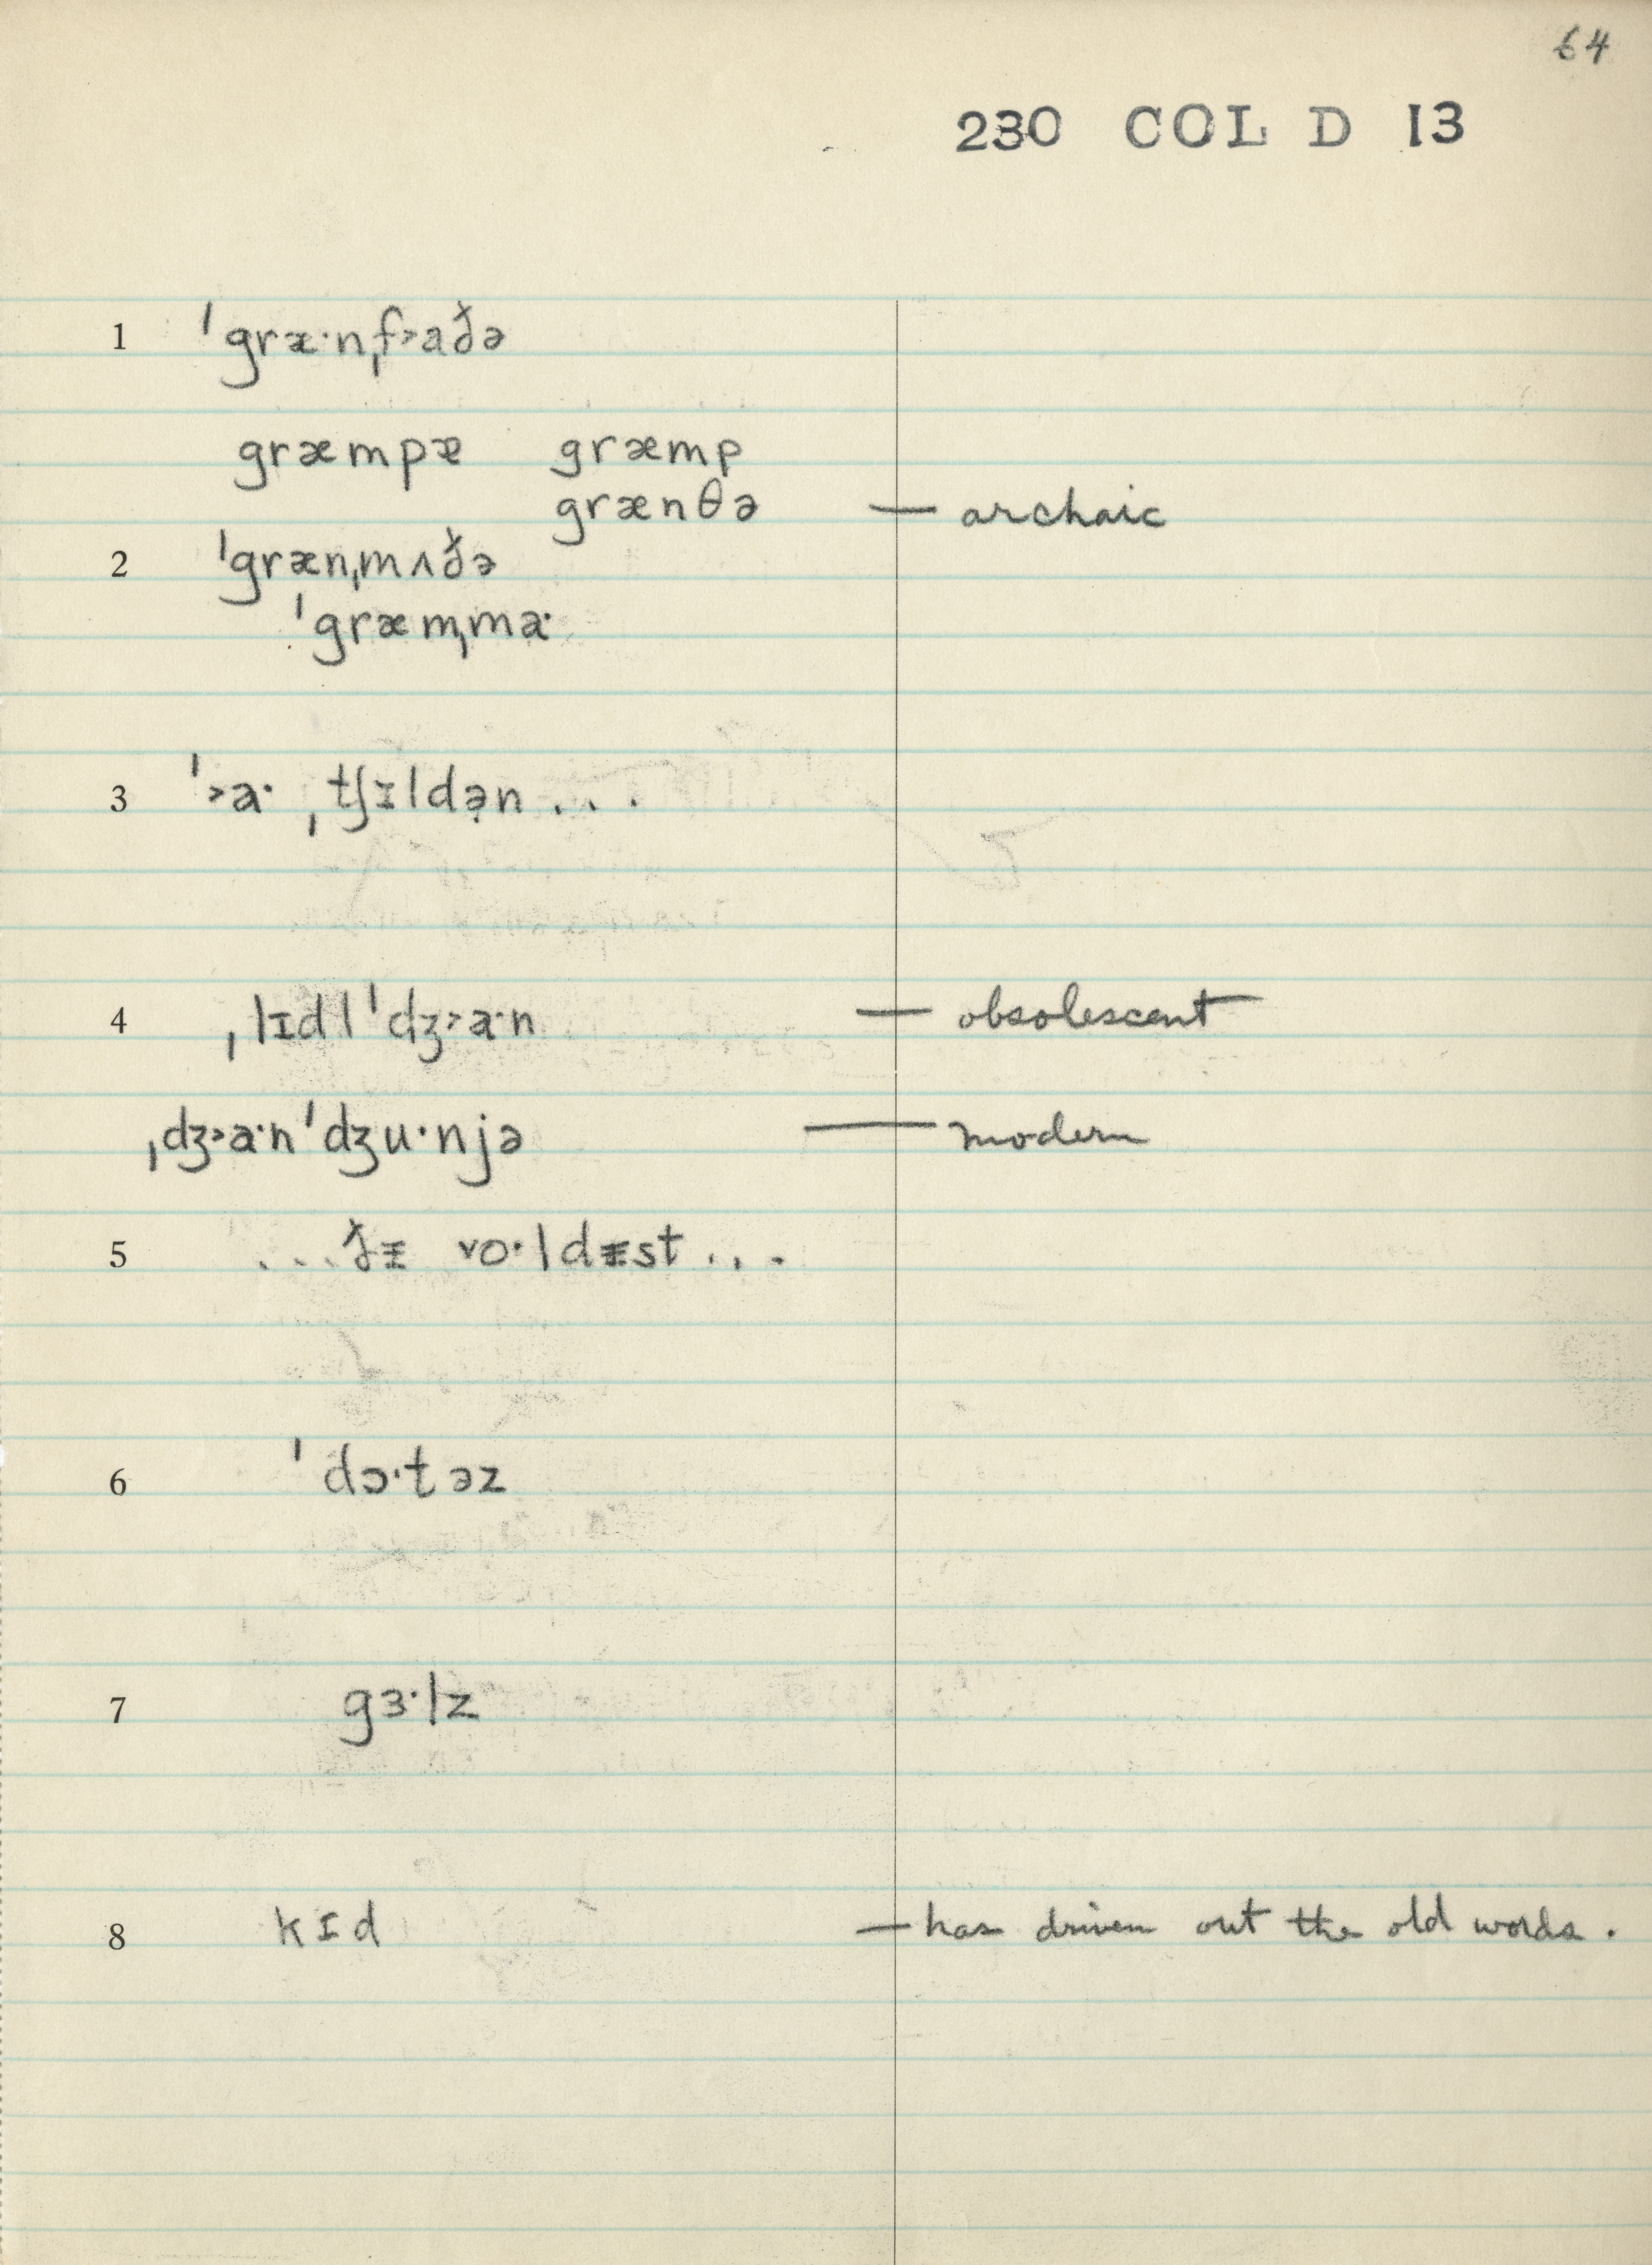 64
230 COL D 13
1 ˈgræ·nˌf˃aðə
græmpæ græmp
grænθə — archaic
2 ˈgrænˌmʌðə
ˈgræmˌma·
3 ˈ˃a· ˌtʃɪldən . . .
4 ˌlɪdlˈdʒ˃a·n — obsolescent
ˌdʒ˃a·nˈdʒu·njə — modern
5 . . . ðɪ ˅o·ldɪst . . .
6 ˈdɔ·təz
7 gɜ·lz
8 kɪd — has driven out the old words.